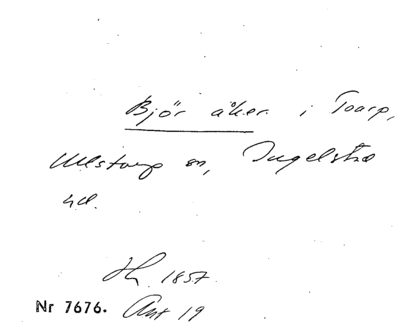 Björåker i Toarp,
Ullstorp sn, Ingelsta
hd.
Hn 1857
Nr 7676. Ant 19